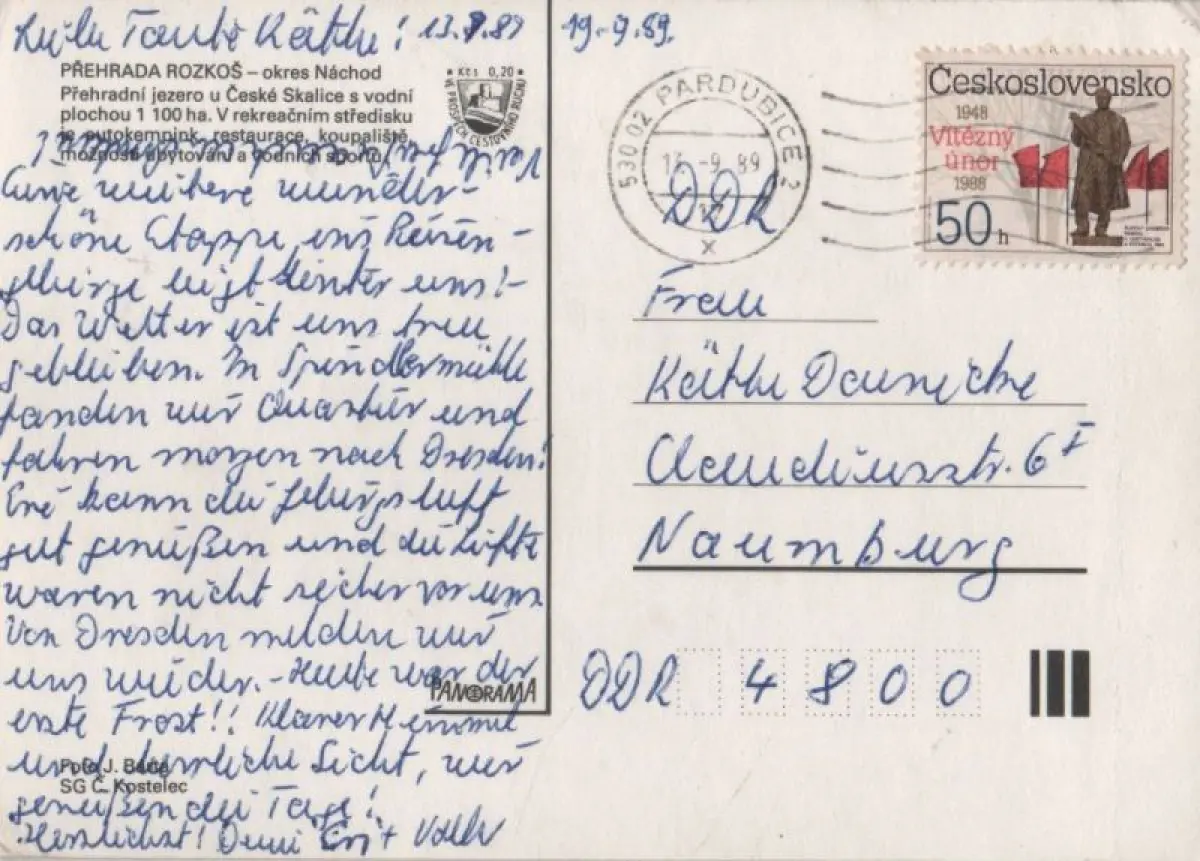 Liebe Tante Käthe! 13.9.89
PŘEHRADA ROZKOŠ – okres Náchod
Přehradní jezero u České Skalice s vodní
plochou 1 100 ha. V rekreačním středisku
je autokempink, restaurace, koupaliště,
možnosti ubytování a vodních sportů.
Kčs 0,20
VE PROSPĚCH CESTOVNÍHO RUCHU
Eine weitere wunder-
schöne Etappe, ins Riesen-
gebirge liegt hinter uns!-
Das Wetter ist uns treu
geblieben. In Spindlermühle
fanden wir Quartier und
fahren morgen nach Dresden!
Eri kann die Gebirgsluft
gut genießen und die Lifte
waren nicht sicher vor uns
Von Dresden melden wir
uns wieder.- Heute war der
erste Frost!! Klarer Himmel
und herrliche Sicht, wir
genießen die Tage!
Herzlichst! Deine Eri + Volker
PANORAMA
Foto J. Bárta
SG Č. Kostelec
19.-9.89.
530 02 PARDUBICE 2
-9.89
x
Československo
1948
Vítězný
únor
1988
50 h
DDR
Frau
Käthe Daunicke
Claudiusstr. 6 I
Naumburg
DDR 4800